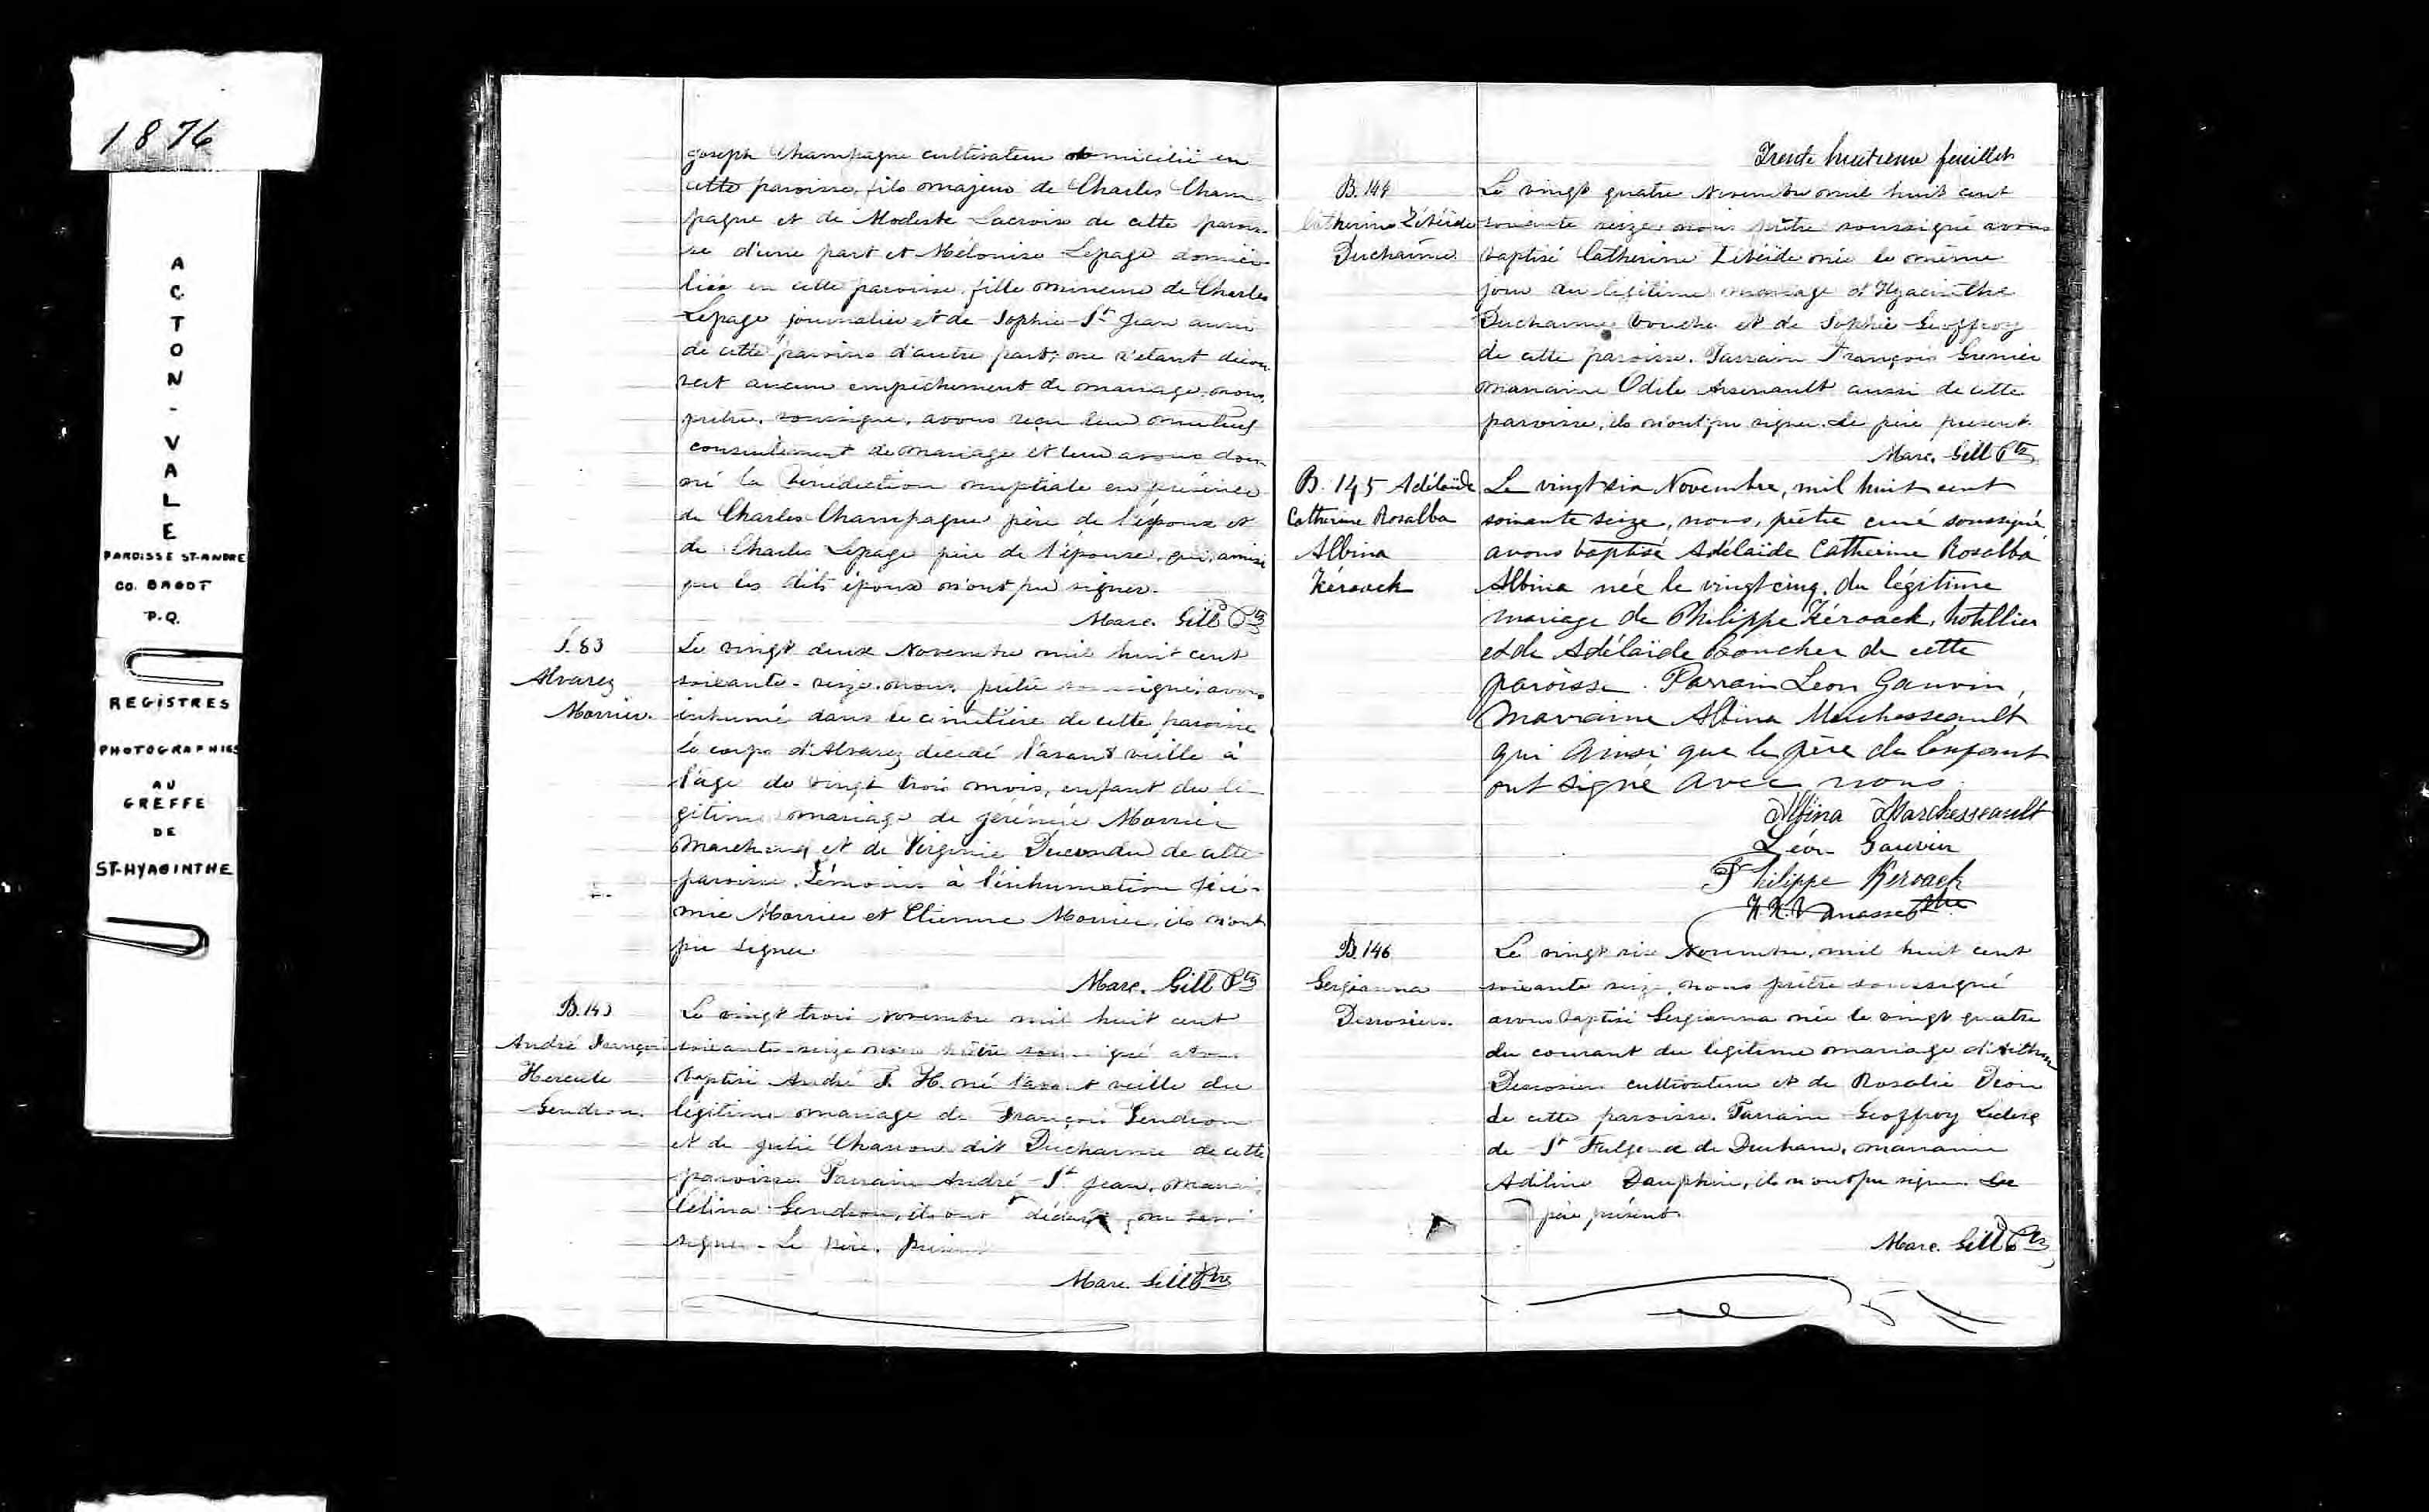 1876
ACTON-VALE
PAROISSE ST-ANDRE
CO. BAGOT
P.Q.
REGISTRES
PHOTOGRAPHIES
AU
GREFFE
DE
ST-HYACINTHE
joseph Champagne cultivateur domicilié en
cette paroisse, fils majeur de Charles Cham-
pagne et de Modeste Lacroix de cette parois-
se d'une part et Mélonise Lepage domici-
liée en cette paroisse, fille mineure de Charles
Lepage journalier et de Sophie St Jean aussi
de cette paroisse d'autre part; ne s'étant décou-
vert aucun empêchement de mariage, nous,
prêtre, soussigné, avons reçu leur mutuel
consentement de mariage et leur avons don-
né la bénédiction nuptiale en présence
de Charles Champagne père de l'époux et
de Charles Lepage père de l'épouse, qui, ainsi
que les dits époux n'ont pu signer.
Marc. Gill Ptre
S. 83
Alvarez
Morrier.
Le vingt deux Novembre mil huit cent
soixante-seize, nous, prêtre soussigné, avons
inhumé dans le cimetière de cette paroisse
le corps d'Alvarez décédé l'avant veille à
l'âge de vingt trois mois, enfant du lé-
gitime mariage de jérémie Morrier
Marchand et de Virginie Ducondu de cette
paroisse. Témoins à l'inhumation Jéré-
mie Morrier et Etienne Morrier, ils n'ont
pu signer
Marc. Gill Ptre
B. 143
André François
Hercule
Gendron.
Le vingt trois novembre mil huit cent
soixante-seize nous prêtre soussigné avons
baptisé André F. H. né l'avant veille du
légitime mariage de François Gendron
et de julie Charron dit Ducharme de cette
paroisse Parrain André St jean, marrai
Célina Gendron, ils ont déclaré ne savoir
signer. Le père présent
Marc. Gill Ptre
Trente huitieme feuillet
B. 144
Catherine Zébéide
Ducharme
Le vingt quatre Novembre mil huit cent
soixante seize, nous prêtre soussigné avons
baptisé Catherine Zébéide née le même
jour du légitime mariage d'Hyacinthe
Ducharme boucher et de Sophie Geoffroy
de cette paroisse. Parrain François Grenier
marraine Odile Arsenault aussi de cette
paroisse, ils n'ont pu signer. Le père présent.
Marc. Gill Ptre
B. 145 Adélaïde
Catherine Rosalba
Albina
Kéroack
Le vingt six Novembre, mil huit cent
soixante seize, nous, prêtre curé soussigné
avons baptisé Adélaïde Catherine Rosalba
Albina née le vingt cinq, du légitime
mariage de Philippe Kéroack, hotellier
et de Adélaïde Boucher de cette
paroisse. Parrain Léon Gauvin,
marraine Albina Marchesseault
qui ainsi que le père de l'enfant
ont signé avec nous.
Albina Marchesseault
Léon Gauvin
Philippe Keroack
Vanasse Ptre
B. 146
Gergianna
Desrosiers.
Le vingt six Novembre, mil huit cent
soixante seize, nous prêtre soussigné
avons baptisé Gergianna née le vingt quatre
du courant du légitime mariage d'Arthur
Desrosiers cultivateur et de Rosalie Dion
de cette paroisse. Parrain Geoffroy Leclerc
de St Fulgence de Durham, marraine
Adéline Dauphin, ils n'ont pu signer. Le
père présent.
Marc. Gill Ptre